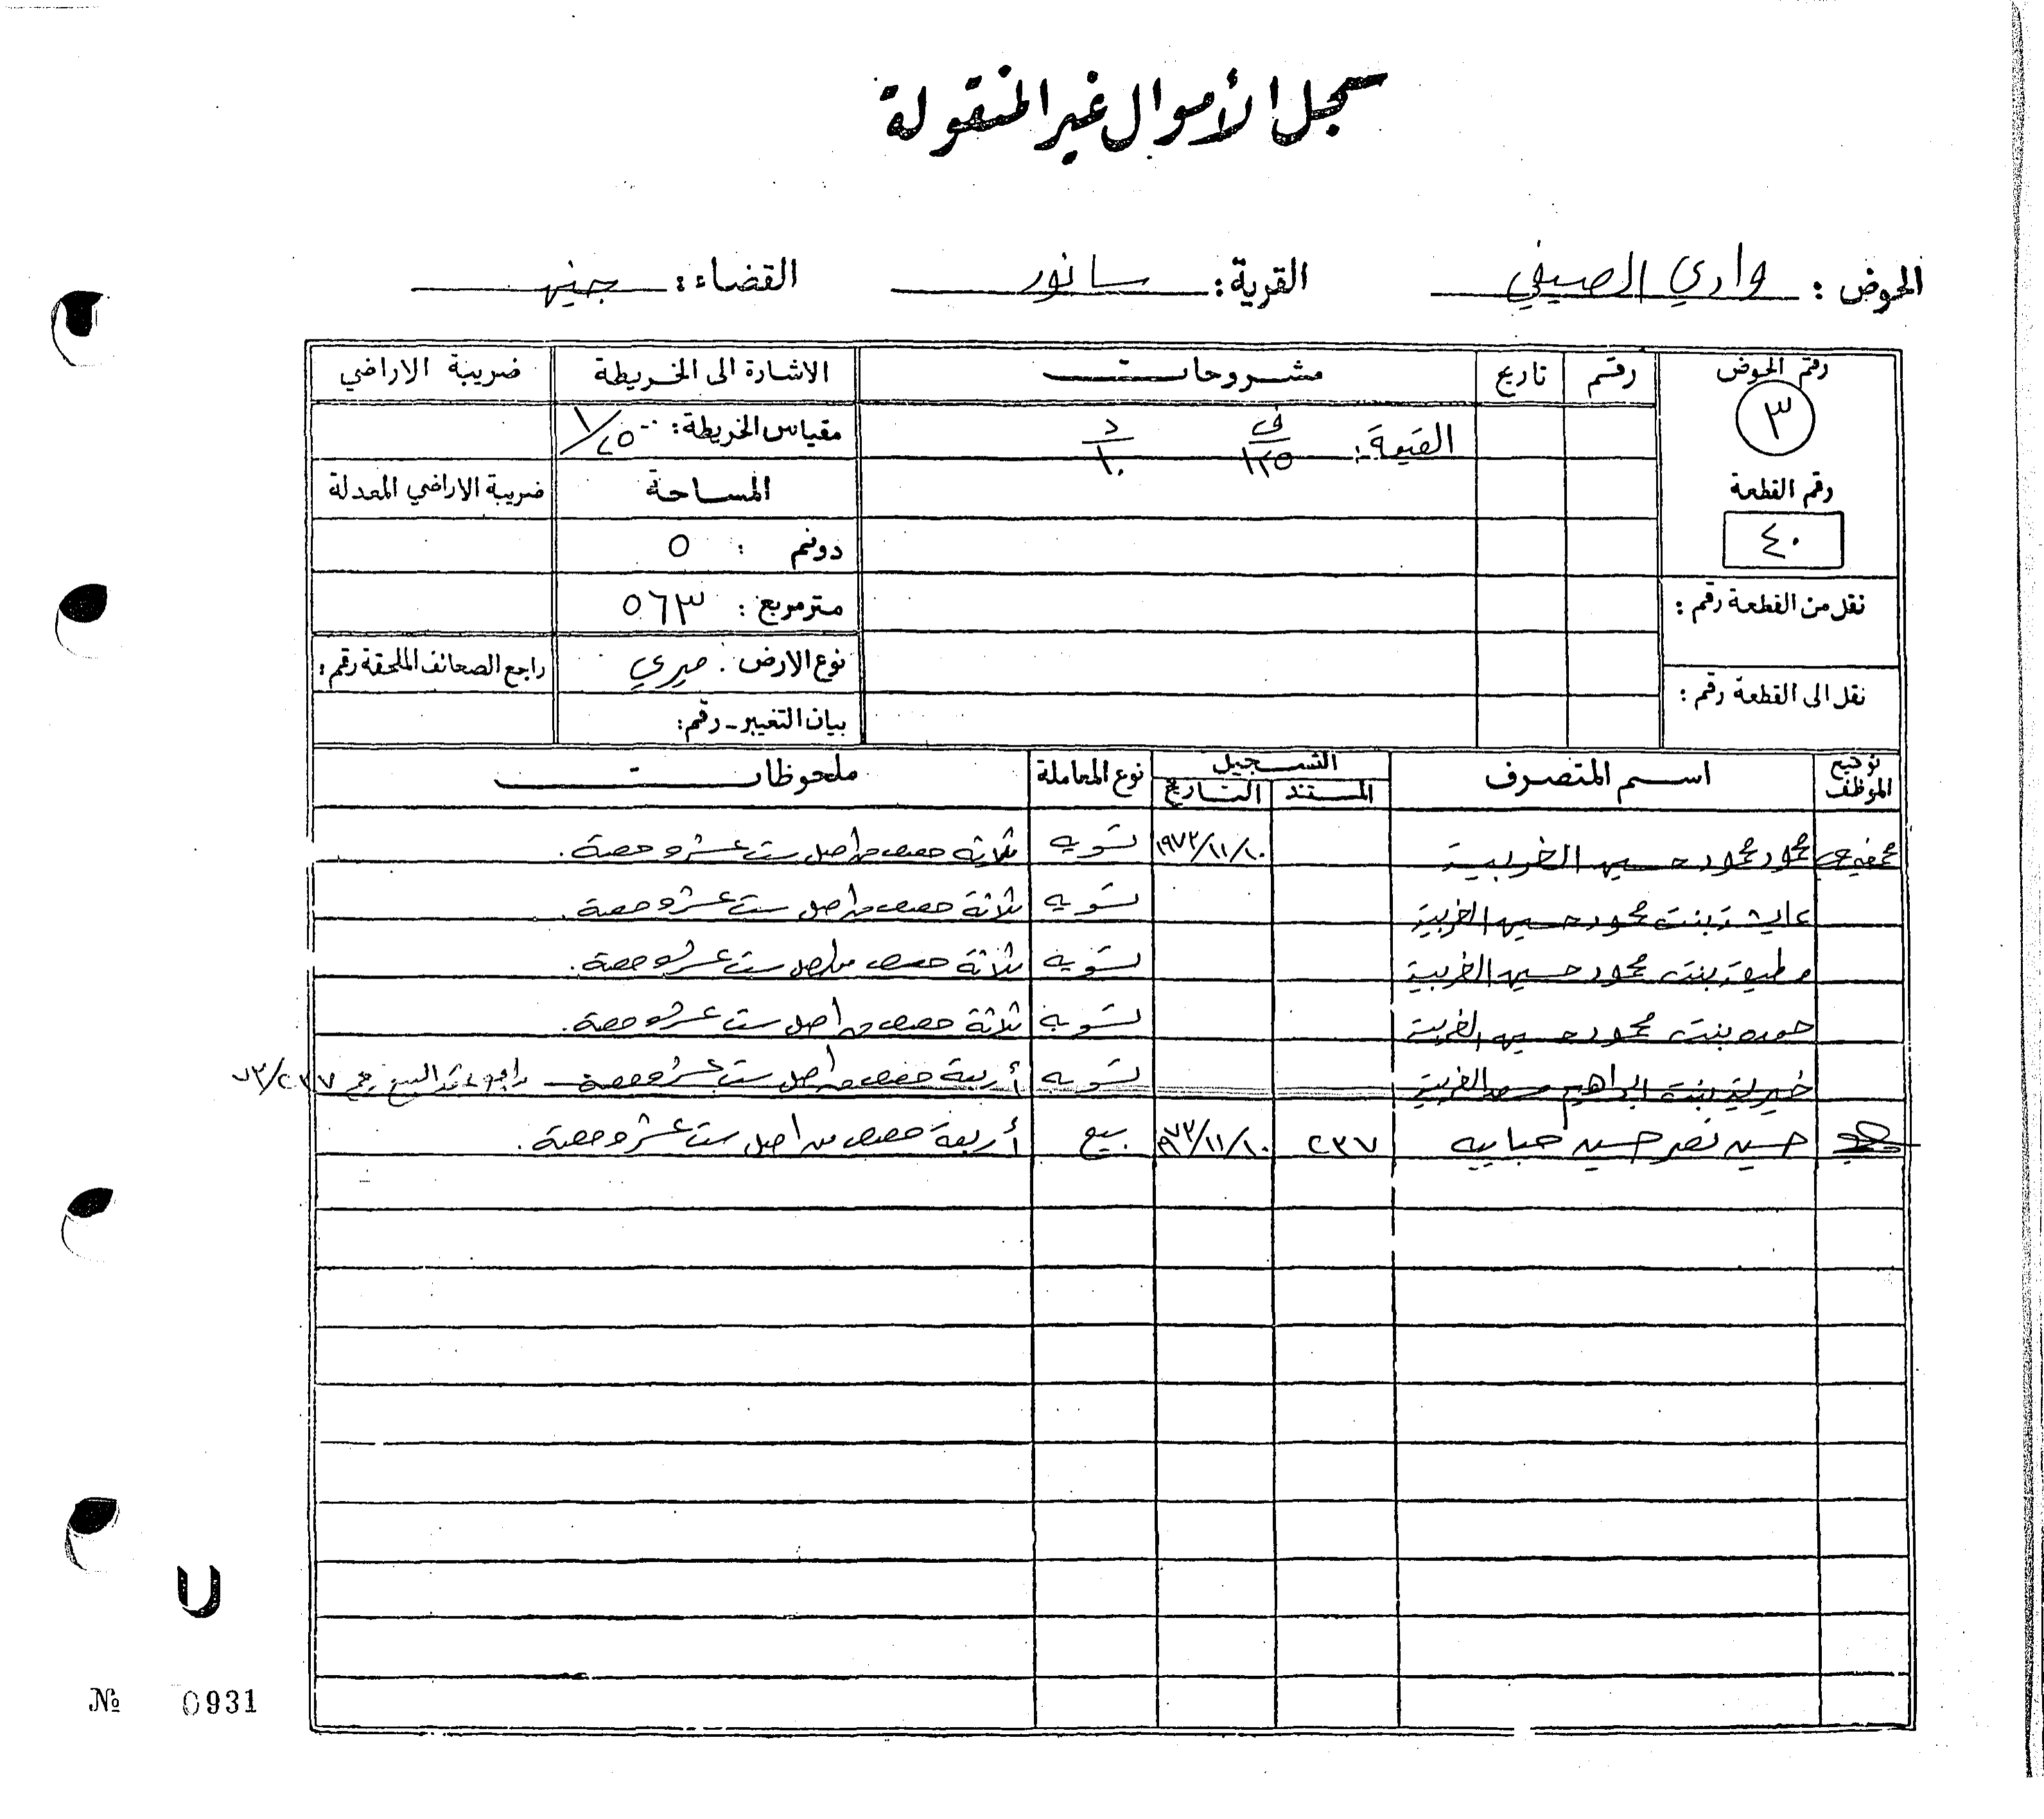 سجل الأموال غير المنقولة
الحوض : وادي الصيفي القرية : سانور القضاء : جنين
رقم الحوض رقم تاريخ مشروحات الاشارة الى الخريطة ضريبة الاراضي
٣ القيمة : ف ١٢٥ د ١٠ مقياس الخريطة : ١/٢٥٠٠
رقم القطعة المساحة ضريبة الاراضي المعدلة
٤٠ دونم : ٥
نقل من القطعة رقم : متر مربع : ٥٦٣
نوع الارض : ميري راجع الصحائف الملحقة رقم :
نقل الى القطعة رقم : بيان التغيير - رقم :
توقيع الموظف اسم المتصرف التسجيل نوع المعاملة ملحوظات
المستند التاريخ
محمود محمود حسين الخريبية ١٩٧٣/١١/١٠ تسوية ثلاثة حصص من اصل ست عشرة حصة .
عايشة بنت محمود حسين الخريبية تسوية ثلاثة حصص من اصل ست عشرة حصة .
بنت محمود حسين الخريبية تسوية ثلاثة حصص من اصل ست عشرة حصة .
بنت محمود حسين الخريبية تسوية ثلاثة حصص من اصل ست عشرة حصة .
خيرية بنت ابراهيم الخريبية تسوية أربعة حصص من اصل ست عشرة حصة راجع عقد البيع رقم ٧٣/٢٣٧
حسين نصر حسين حبايبه ٢٣٧ ٩٧٣/١١/١٠ بيع أربعة حصص من اصل ست عشرة حصة .
U
№ 0931